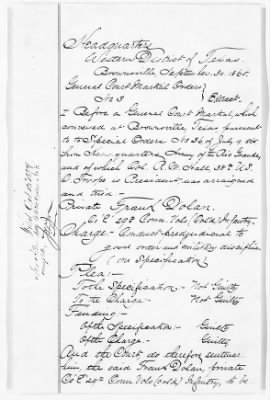 Headquarters
Western District of Texas
Brownsville, September 30. 1865.
General Court Martial Orders
No 3
Extract.
I Before a General Court Martial, which
convened at Brownsville, Texas pursuant
to Special Orders No 30 of July
from Head quarters Army of Rio Grande,
and of which Col. R. M. Hall 38th U.S.
C. Troops is President was arraigned
and tried—
Private Frank Dolan.
Co. E. 29th Conn. Vols, (Col'd) Infantry.
Charge— Conduct prejudicial to
good order and military discipline.
(one Specification)
Plea:—
To the Specification— Not Guilty
To the Charge— Not Guilty
Finding—
Of the Specification— Guilty
Of the Charge— Guilty
And the Court do therefore sentence
him, the said Frank Dolan, private
Co E. 29th Conn Vols (Col'd) Infantry, to be